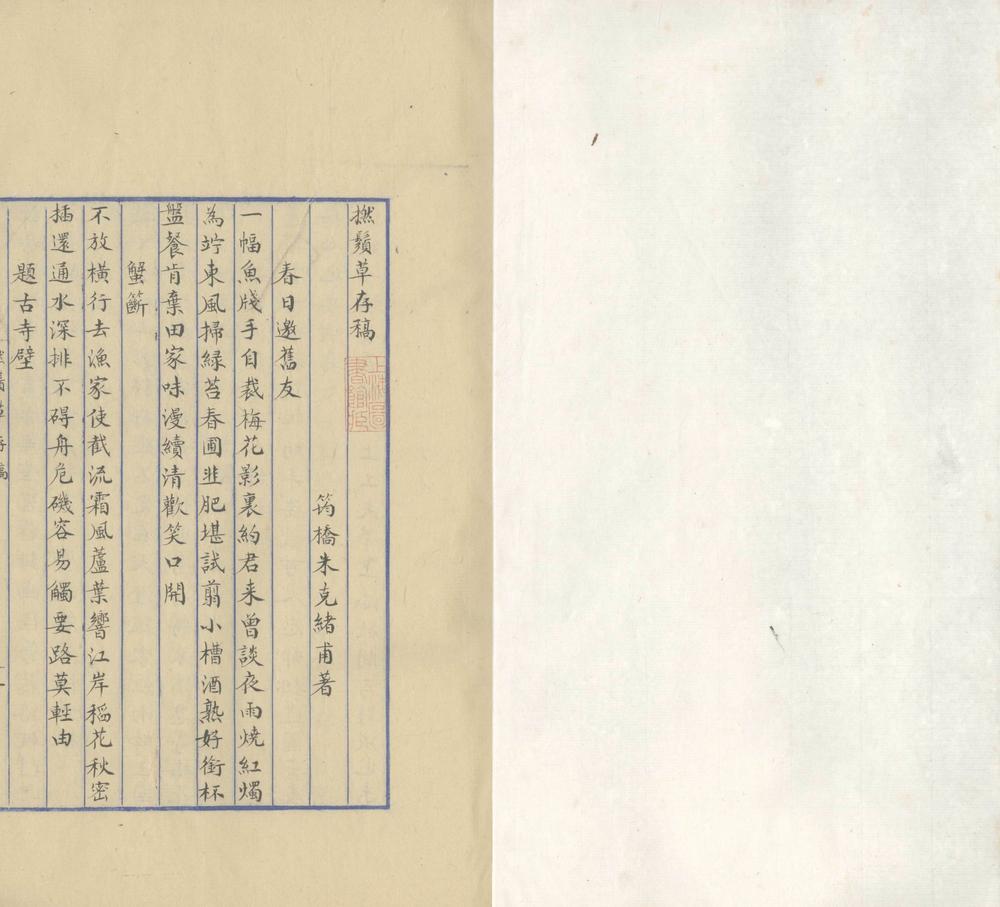 撚鬚草存稿
上海圖書館藏
筠橋朱克緒甫著
春日邀舊友
一幅魚牋手自裁梅花影裏約君来曾談夜雨燒紅燭
為竚東風掃緑苔春圃韭肥堪試翦小槽酒熟好銜杯
盤餐肯棄田家味漫續清歡笑口開
蟹籪
不放橫行去漁家使截流霜風蘆葉響江岸稻花秋密
插還通水深排不碍舟危磯容易觸要路莫輕由
題古寺壁